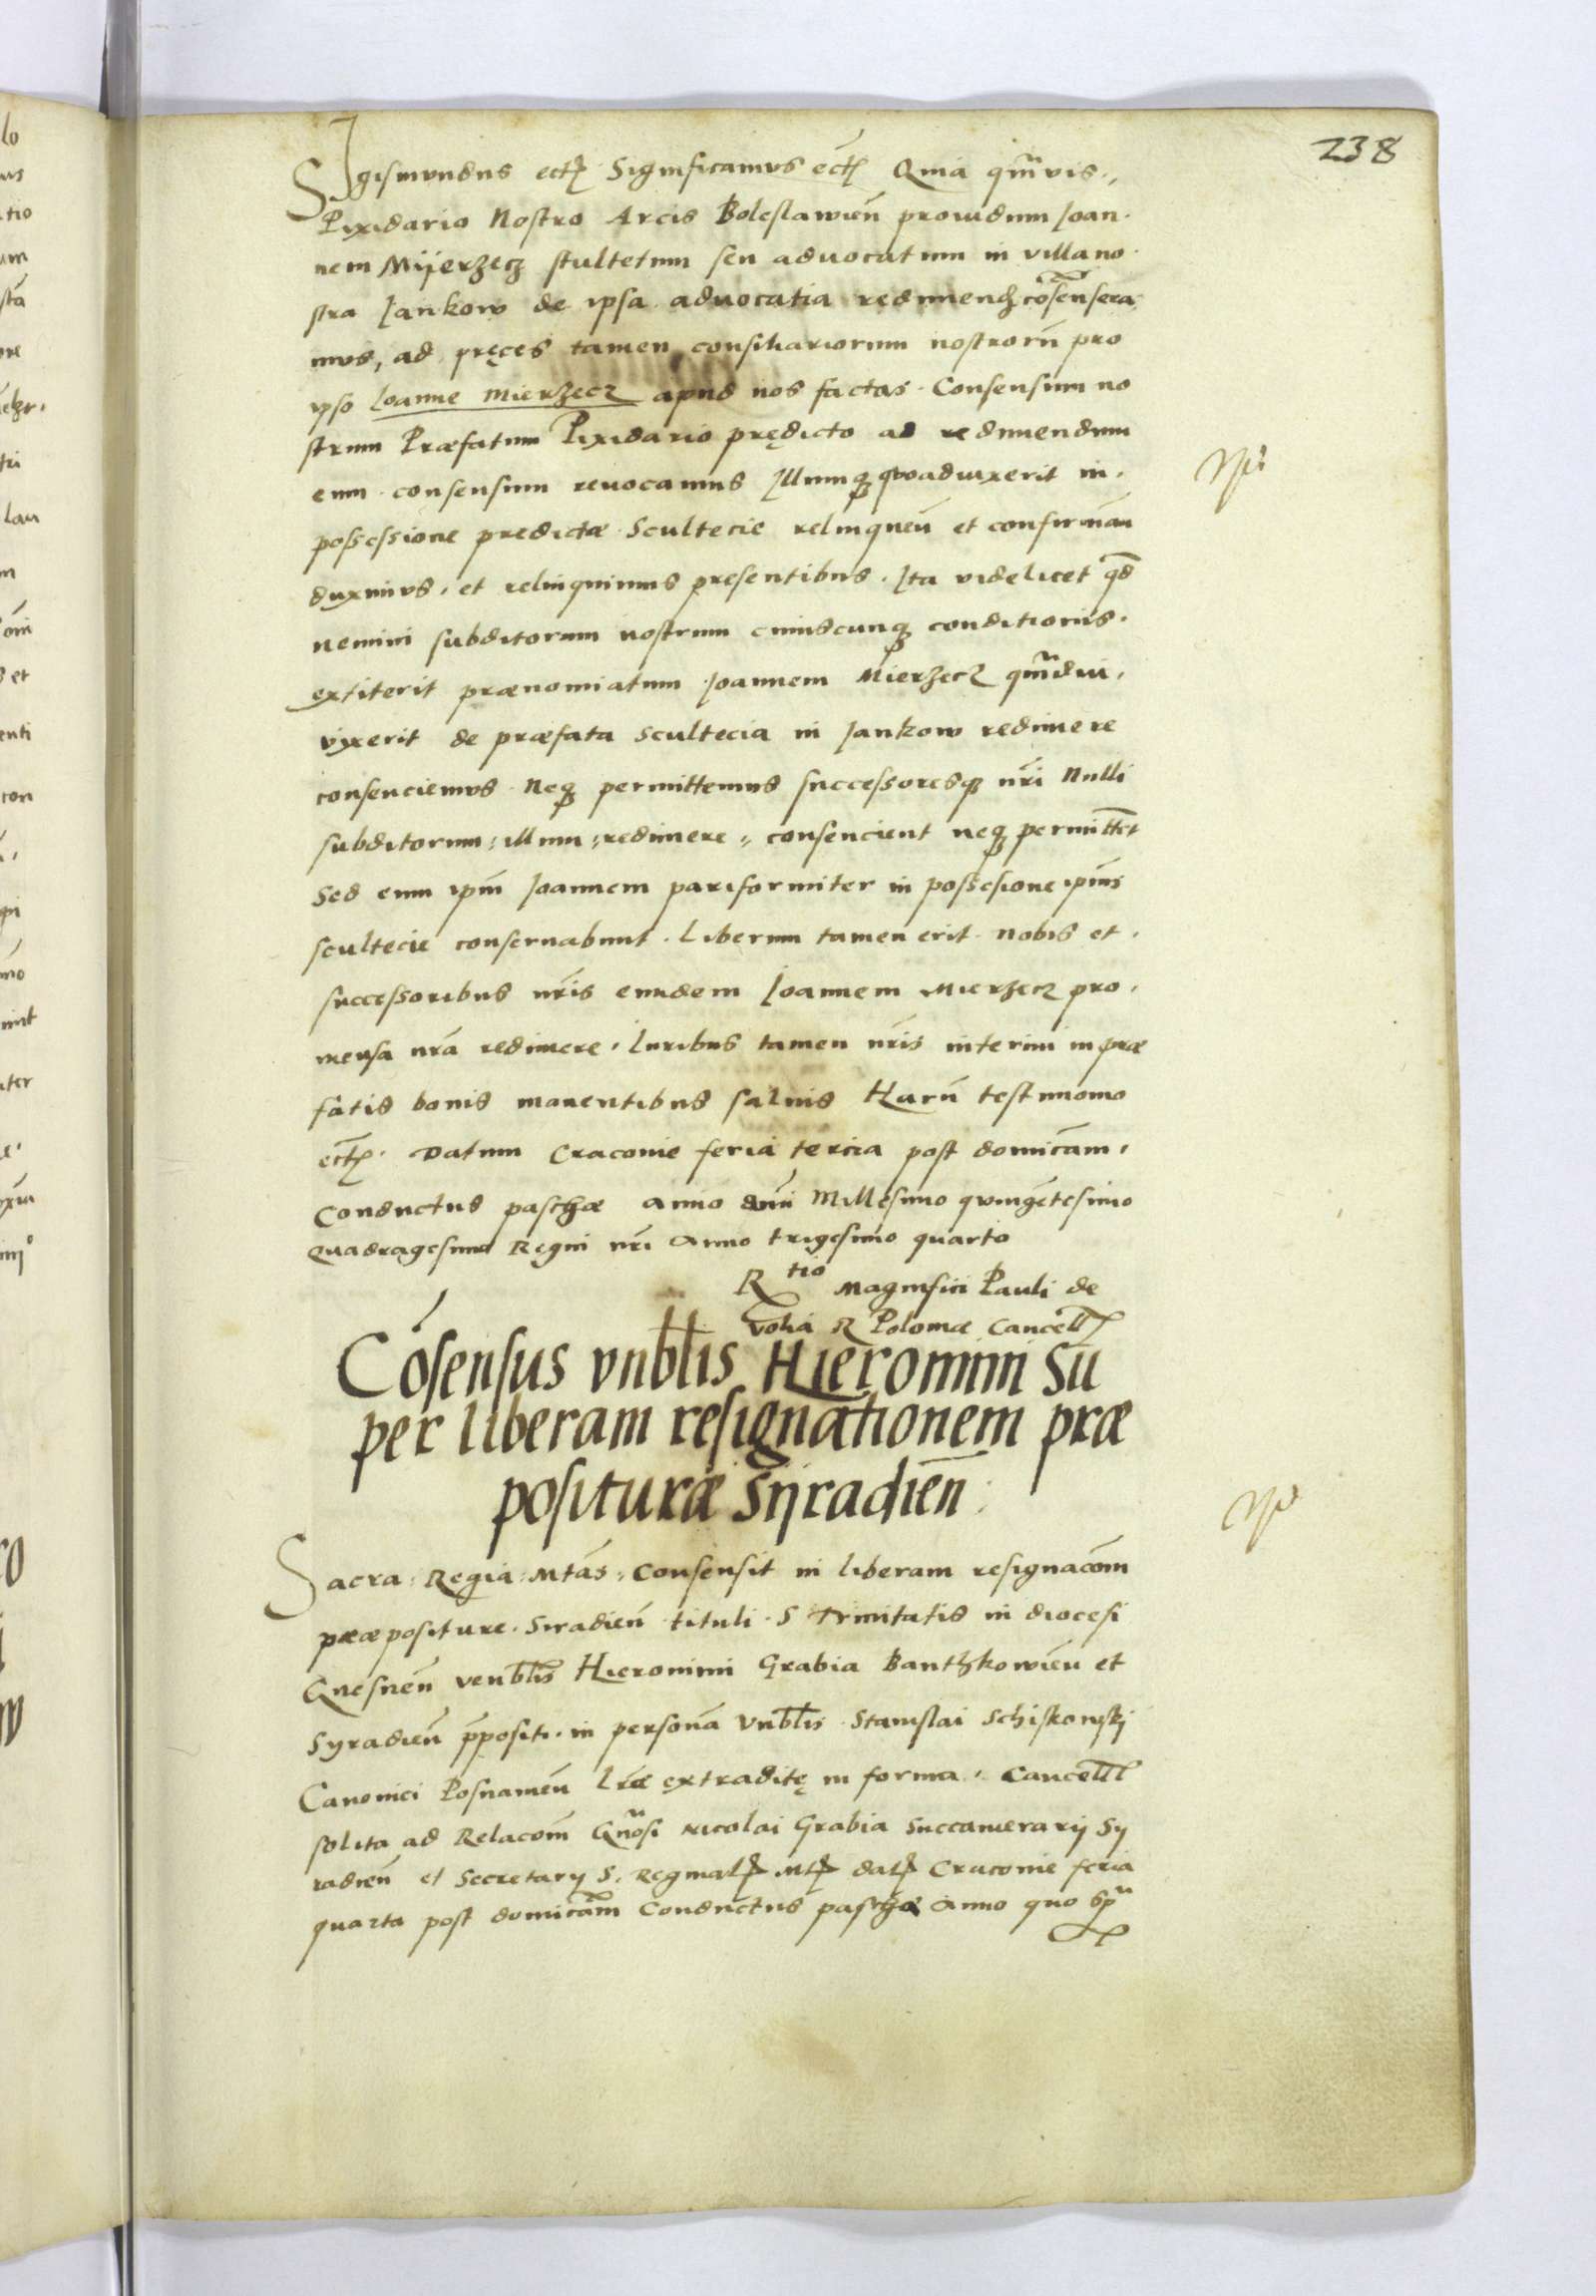 238
Sigismundus ectꝫ Significamus ectꝫ Quia qm̄vis,,
Pixidario Nostro Arcis Boleslawien̄ prouidum Joan·
nem Mÿerzecz stultetum seu aduocatum in villa no·
stra Jankow de ipsa aduocatia redimend cōsensera
mus, ad pręces tamen consiliariorum nostrorū pro
ypso Joanne Mierzecz apud nos factas Consensum no
strum Præfatum Pixidario prędicto ad redimendum
eum consensum reuocamus Jllumqꝫ quoaduixerit in,
possessione predictæ Scultecie relinqueń et confirmań
duximus, et relinquimus presentibus. Jta videlicet qd̄
nemini subditorum nostrum cuiuscunqꝫ conditionis.
extiterit prænomiatum Joannem Mierzecz qm̄diu,
vixerit de præfata Scultecia in Jankow redimere
consenciemus Neqꝫ permittemus successoresqꝫ nr̄i Nulli
subditorum, illum redimere,, consencient neqꝫ permittēt
Sed eum ipm̄ Joannem pariformiter in possesione ipīus
scultecie conseruabunt. Liberum tamen erit nobis et.
successoribus nr̄is eundem Joannem Mierzecz pro,
mensa nr̄a redimere, Juribus tamen nr̄is interim in præ
fatis bonis manentibus saluis Harū testimonio
ectꝫ. Datum Cracovie feria tercia post domicam̄,
Conductus paschæ anno dn̄i Millesimo quingētesimo
Quadragesimo Regni nr̄i Anno trigesimo quarto
R tio Magnifici Pauli de
Volia R Poloniæ Cancell
Cōsensus vnb̄lis Hieronimi Su
per liberam resignationem præ
posituræ Sÿradień
Sacra Regia Mtās, Consensit in liberam resignacōm
præpositure Siradień tituli S Trinitatis in diocesi
Gnesneń venb̄lis Hieronimi Grabia Bantzkowień et
Syradień p̄positi in personā Vnb̄lis Stanislai Schiskowskj
Canonici Posnanień Lr̄æ extraditę in forma, Cancell
solita ad Relacōm Gn̄osi Nicolai Grabia Succamerarij Sy
radień et Secretary S. Reginalꝫ Mtꝫ datꝫ Cracovie feria
quarta post domicām Conductus paschæ Anno quo spͬ